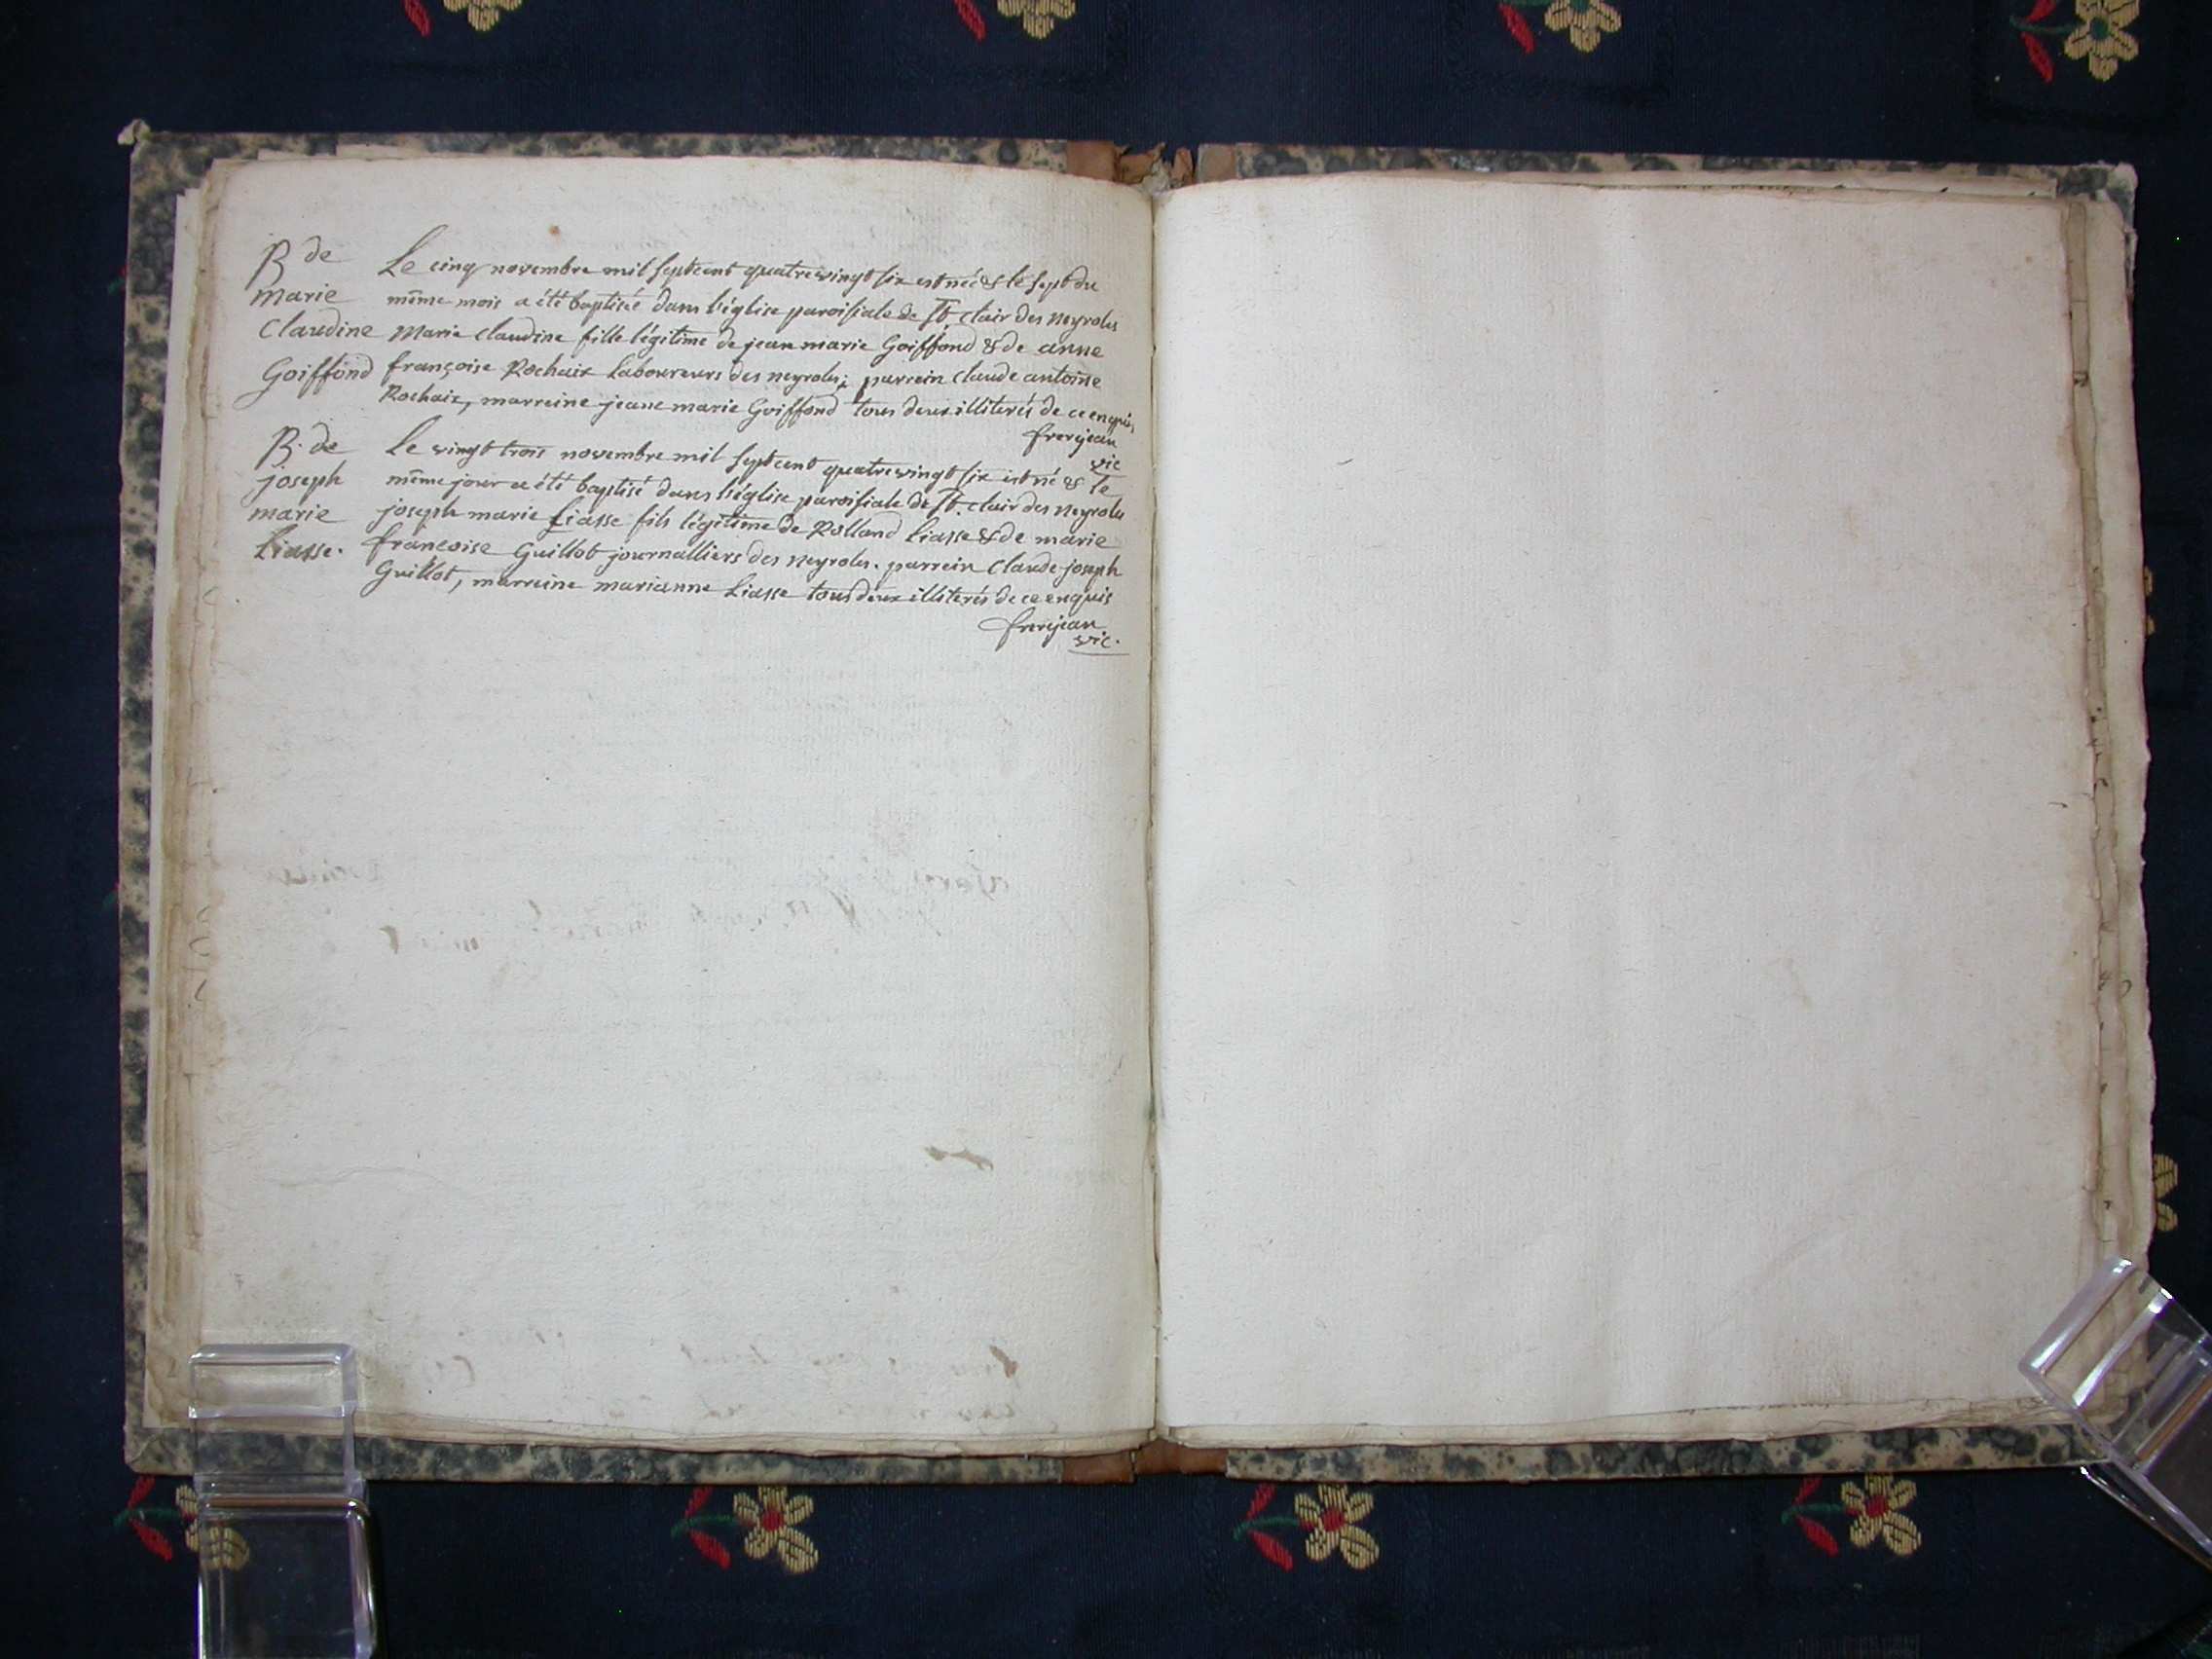 B de
marie
Claudine
Goiffond
Le cinq novembre mil septcent quatrevingt six est née & le sept du
même mois a été baptisée dans l'église paroisiale de St. clair des neyroles
Marie claudine fille légitime de jean marie Goiffond & de anne
françoise Rochaix Laboureurs des neyroles; parrein claude antoine
Rochaix, marreine jeane marie Goiffond tous deux illiterés de ce enquis,
frerejean
vic
B. de
joseph
marie
Liasse.
Le vingt trois novembre mil septcent quatrevingt six est né & le
même jour a été baptisé dans l'église paroisiale de St. clair des neyroles
joseph marie Liasse fils légitime de Rolland Liasse & de marie
francoise Guillot journalliers des neyroles. parrein Claude joseph
Guillot, marreine marianne Liasse tous deux illiterés de ce enquis
frerejean
vic.